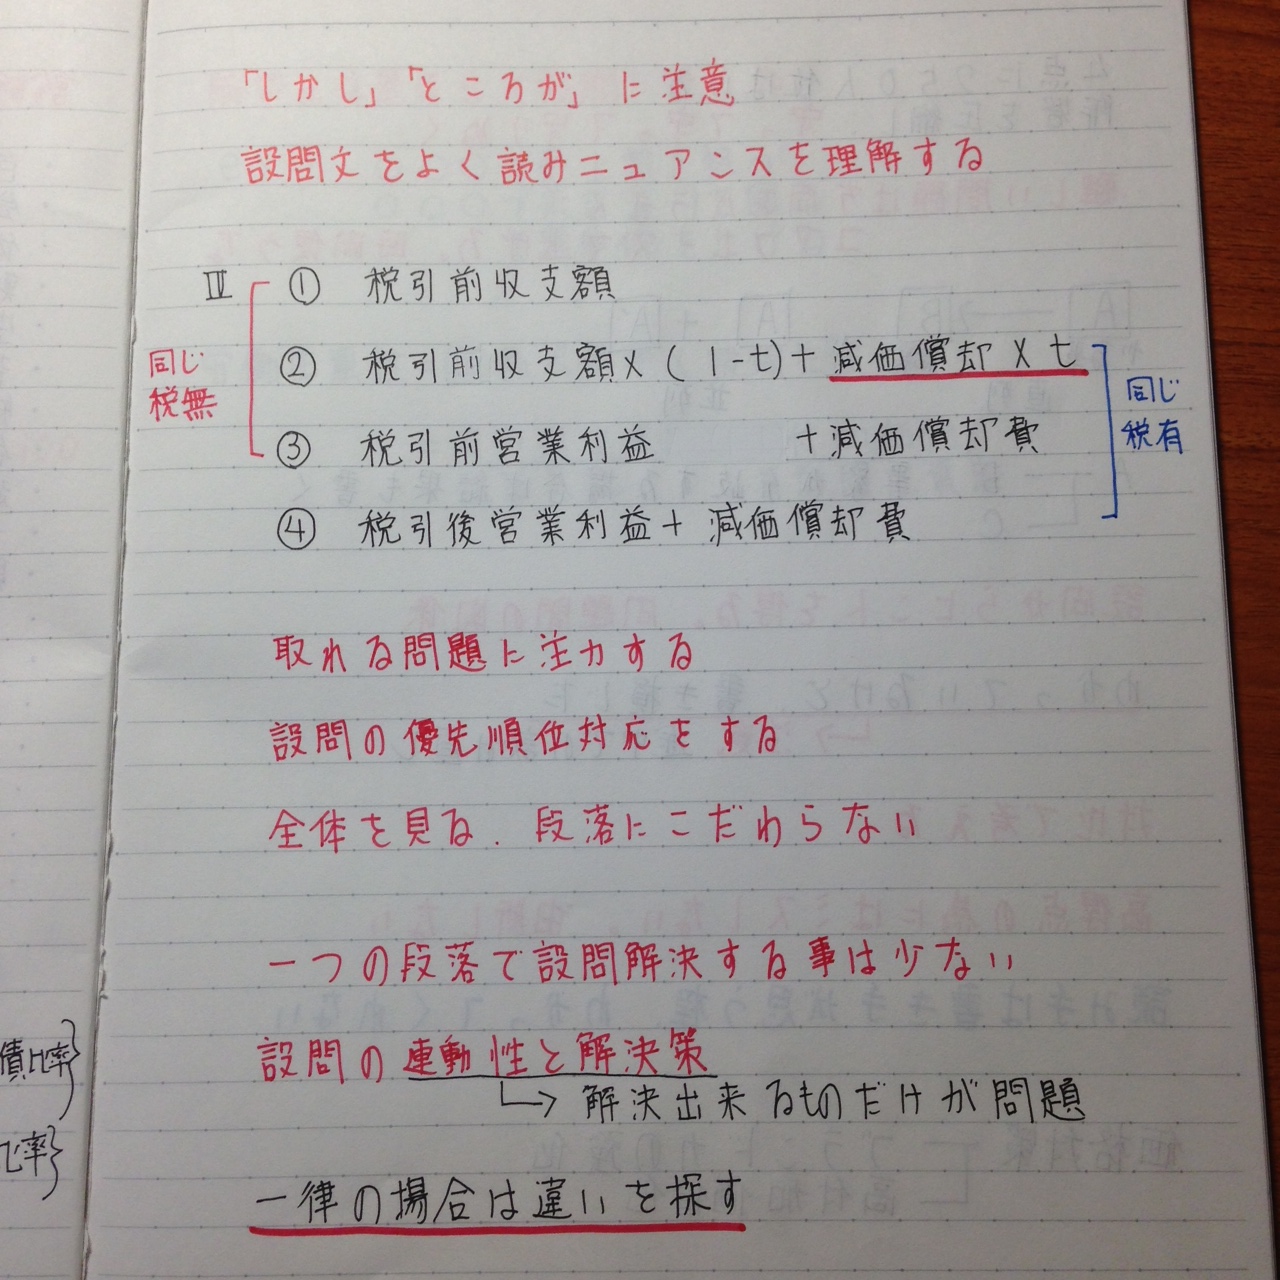 「しかし」「ところが」に注意
設問文をよく読みニュアンスを理解する
Ⅳ ① 税引前収支額
② 税引前収支額×(1-t)+減価償却×t
同じ
税無
同じ
税有
③ 税引前営業利益 +減価償却費
④ 税引後営業利益+減価償却費
取れる問題に注力する
設問の優先順位対応をする
全体を見る. 段落にこだわらない
一つの段落で設問解決する事は少ない
設問の連動性と解決策
→ 解決出来るものだけが問題
一律の場合は違いを探す
債比率}
比率}